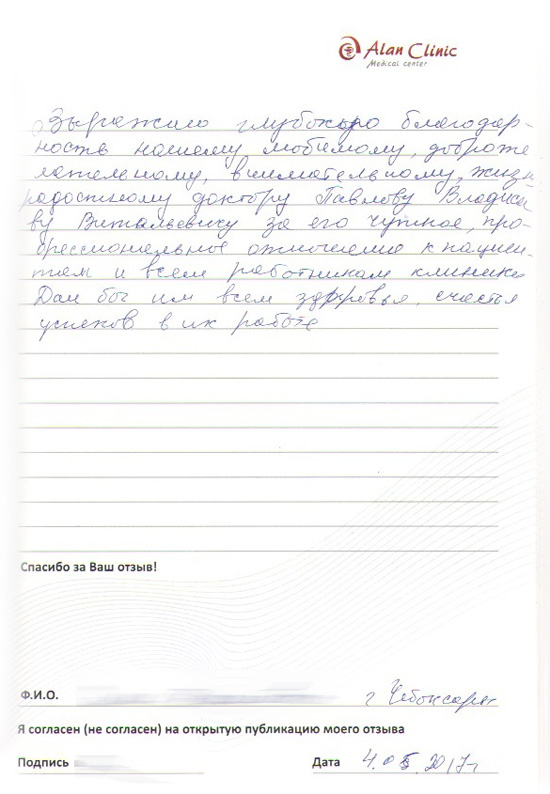 Alan Clinic
Medical center
Выражаю глубокую благодар-
ность нашему любимому, доброже
лательному, внимательному, жизн
радостному доктору Павлову Владисла
ву Витальевичу за его чуткое, про-
фессиональное отношение к пациен-
там и всем работникам клиники
Дай бог им всем здоровья, счастья
успехов в их работе
Спасибо за Ваш отзыв!
Ф.И.О. г Чебоксары
Я согласен (не согласен) на открытую публикацию моего отзыва
Подпись Дата 4.05.2017г